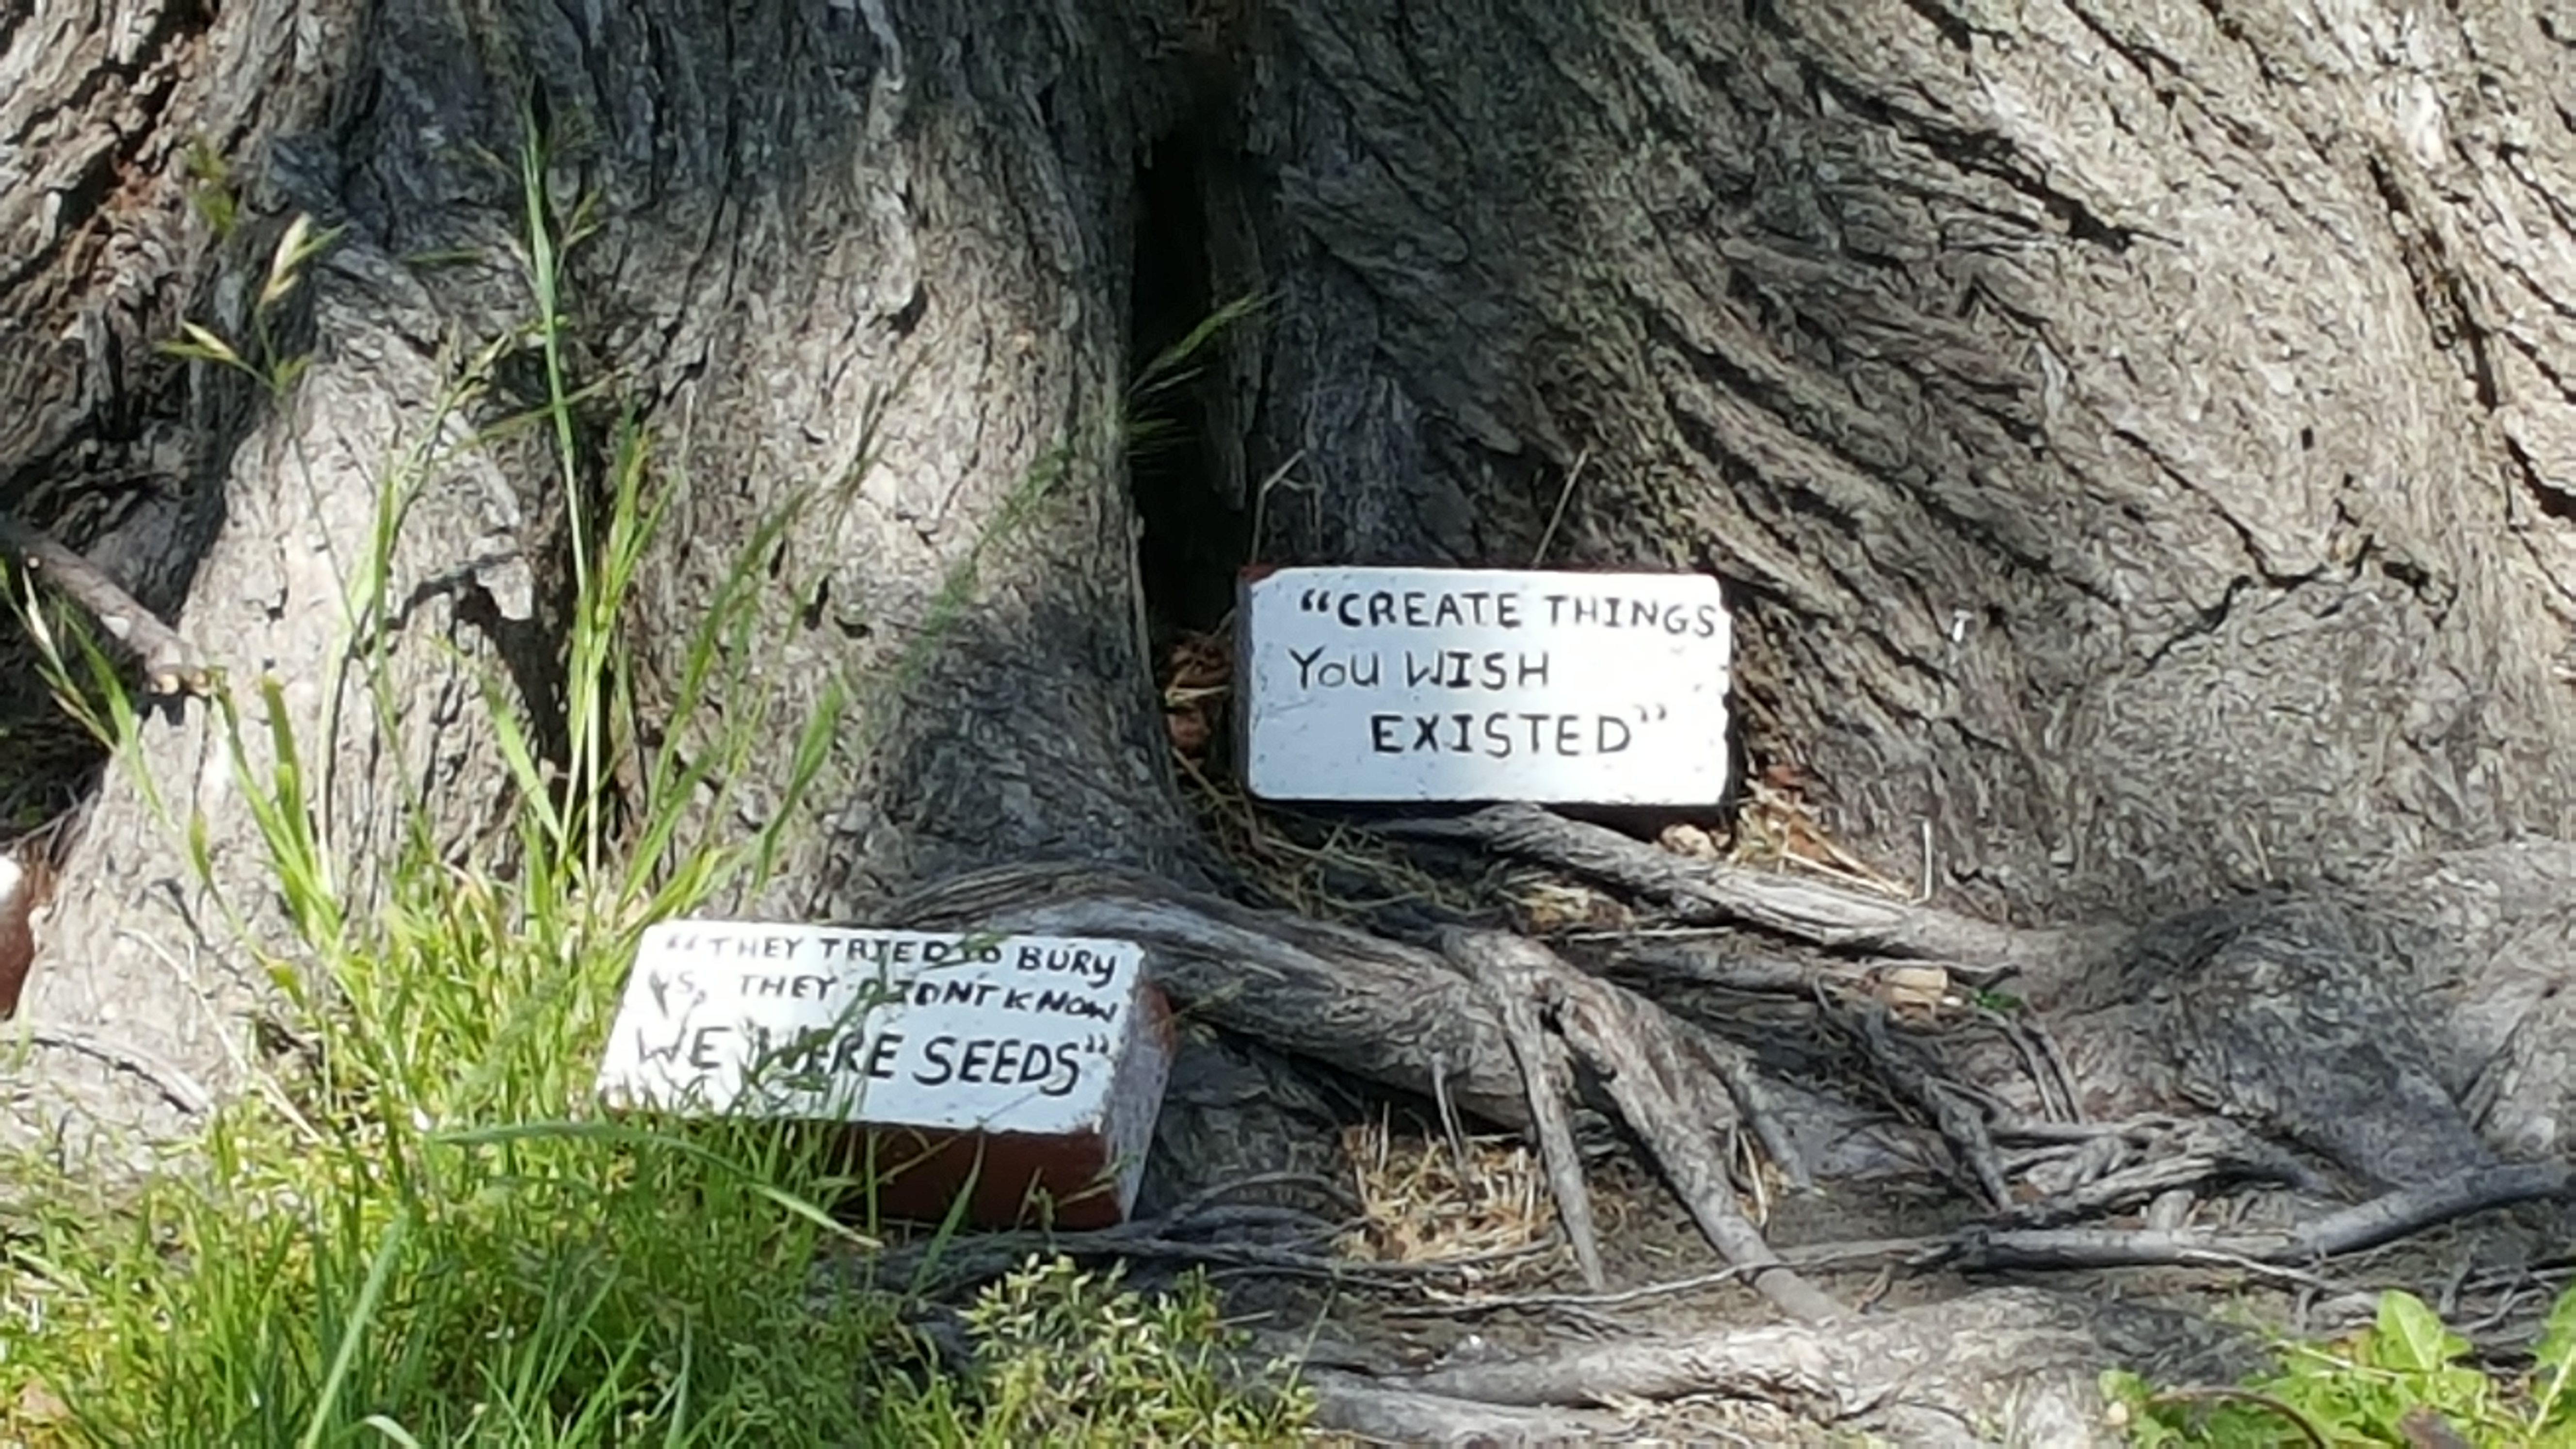 “CREATE THINGS
YOU WISH
EXISTED”
“THEY TRIED TO BURY
US, THEY DIDNT KNOW
WE WERE SEEDS”